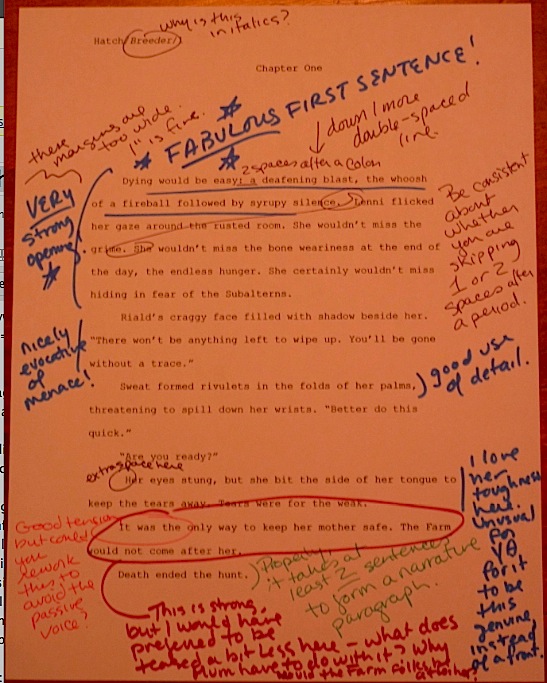 why is this
in italics?
Hatch/Breeder/1
Chapter One
these
margins are
too wide.
1" is fine.
FABULOUS FIRST SENTENCE!
down 1 more
double-spaced
line.
2 spaces after a colon
Dying would be easy: a deafening blast, the whoosh
of a fireball followed by syrupy silence. Lenni flicked
her gaze around the rusted room. She wouldn't miss the
grime. She wouldn't miss the bone weariness at the end of
the day, the endless hunger. She certainly wouldn't miss
hiding in fear of the Subalterns.
VERY
strong
opening
Be consistent
about
whether
you are
skipping
1 or 2
spaces after
a period.
Riald's craggy face filled with shadow beside her.
"There won't be anything left to wipe up. You'll be gone
without a trace."
nicely
evocative
of
menace!
Sweat formed rivulets in the folds of her palms,
threatening to spill down her wrists. "Better do this
quick."
good use
of detail.
"Are you ready?"
extra space here
Her eyes stung, but she bit the side of her tongue to
keep the tears away. Tears were for the weak.
I love
her
toughness
here. Unusual
for
YA
for it
to be
this
genuine,
instead
of a front.
It was the only way to keep her mother safe. The Farm
would not come after her.
Good tension,
but could
you
rework
this to
avoid the
passive
voice?
Death ended the hunt.
Properly,
it takes at
least 2 sentences
to form a narrative
paragraph.
This is strong,
but I would have
preferred to be
teased a bit less here – what does
Mum have to do with it? Why
would the Farm follow her